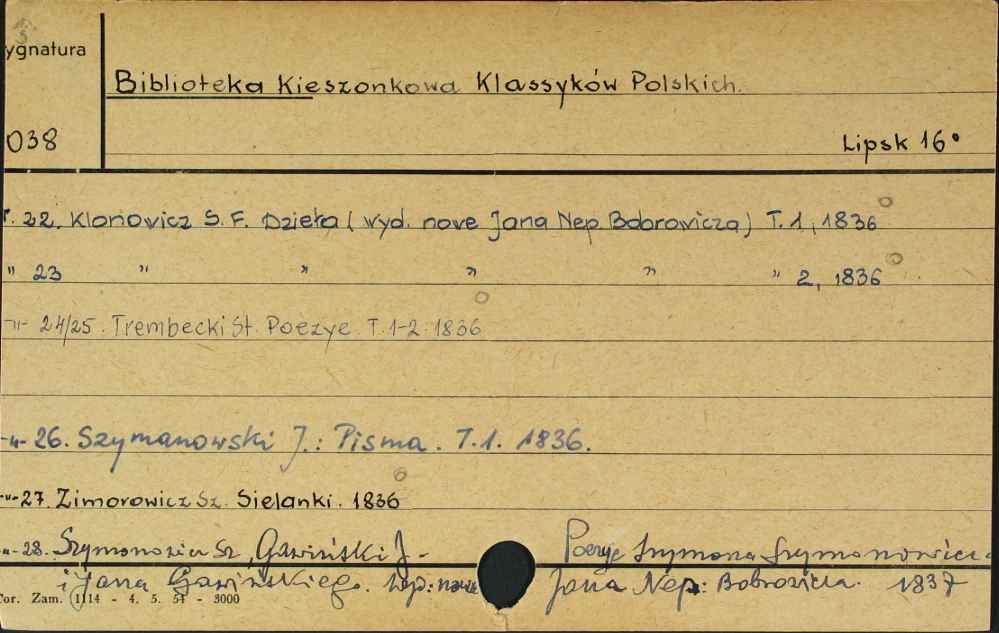 ygnatura
Biblioteka Kieszonkowa Klassyków Polskich.
038
Lipsk 16°
T. 22. Klonowicz S. F. Dzieła (wyd. nowe Jana Nep. Bobrowicza) T. 1, 1836
" 23 " " " " " 2, 1836
-"- 24/25. Trembecki St. Poezye. T. 1-2. 1836
-"- 26. Szymanowski J.: Pisma. T. 1. 1836.
-"- 27. Zimorowicz Sz. Sielanki. 1836
-"- 28. Szymonowicz Sz, Gawiński J - Poezyje Szymona Szymonowicza
i Jana Gawińskiego. Wyd: nowe Jana Nep: Bobrowicza. 1837
or. Zam. 1114 - 4. 5. 51 - 3000